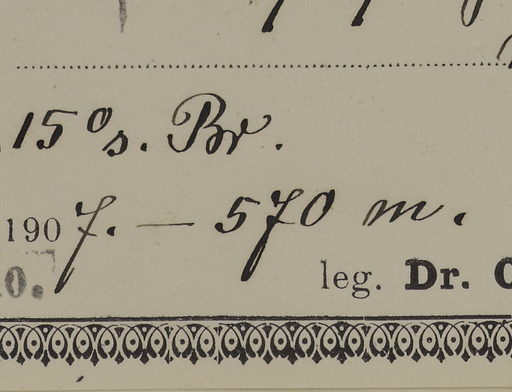 15° s. Br.
1907. — 570 m.
leg. Dr.